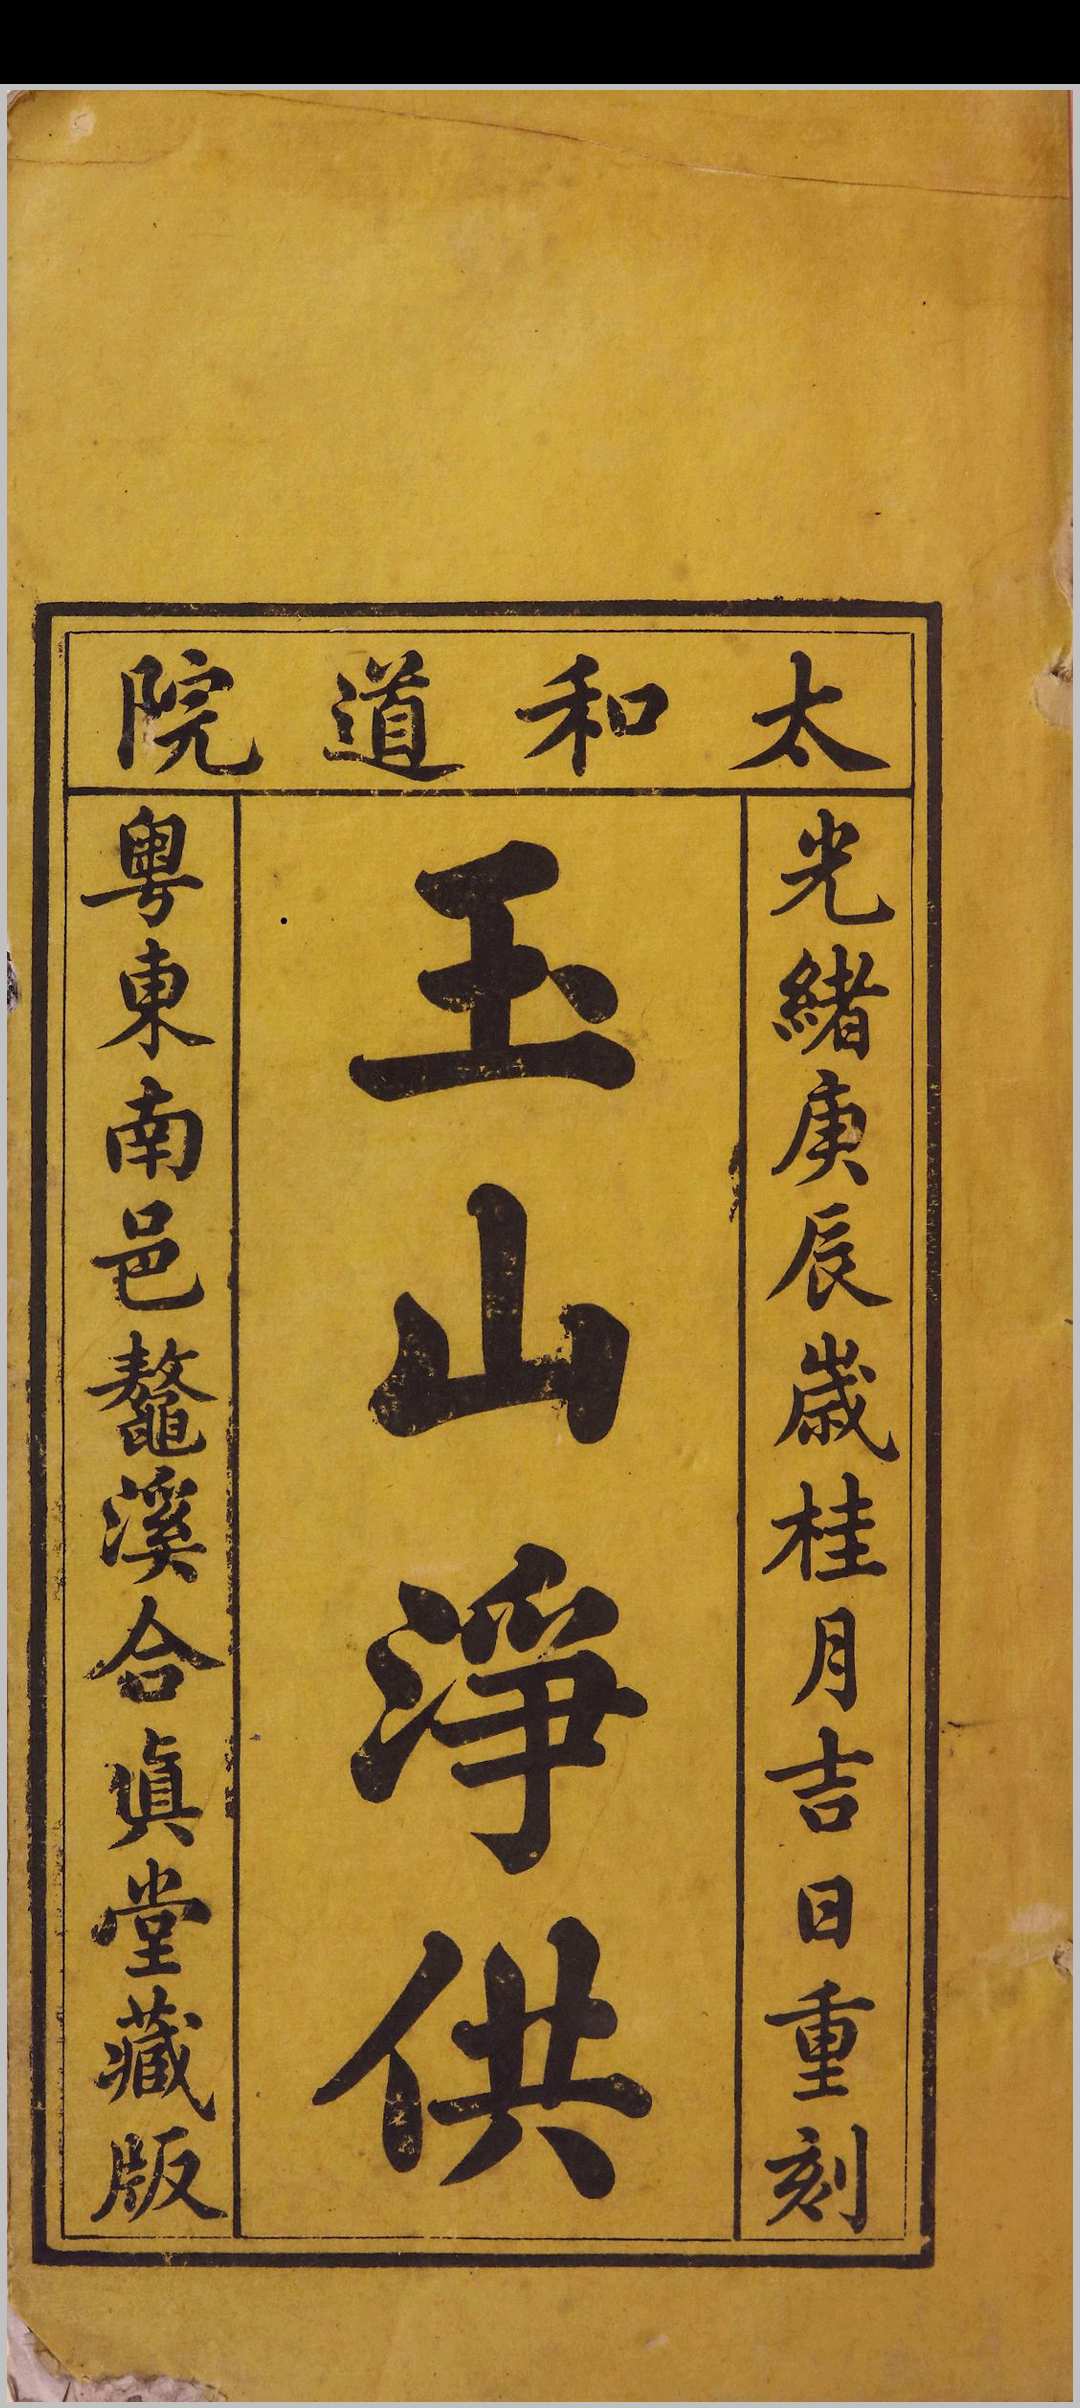 太和道院
光緒庚辰歲桂月吉日重刻
玉山淨供
粵東南邑鼇溪合眞堂藏版